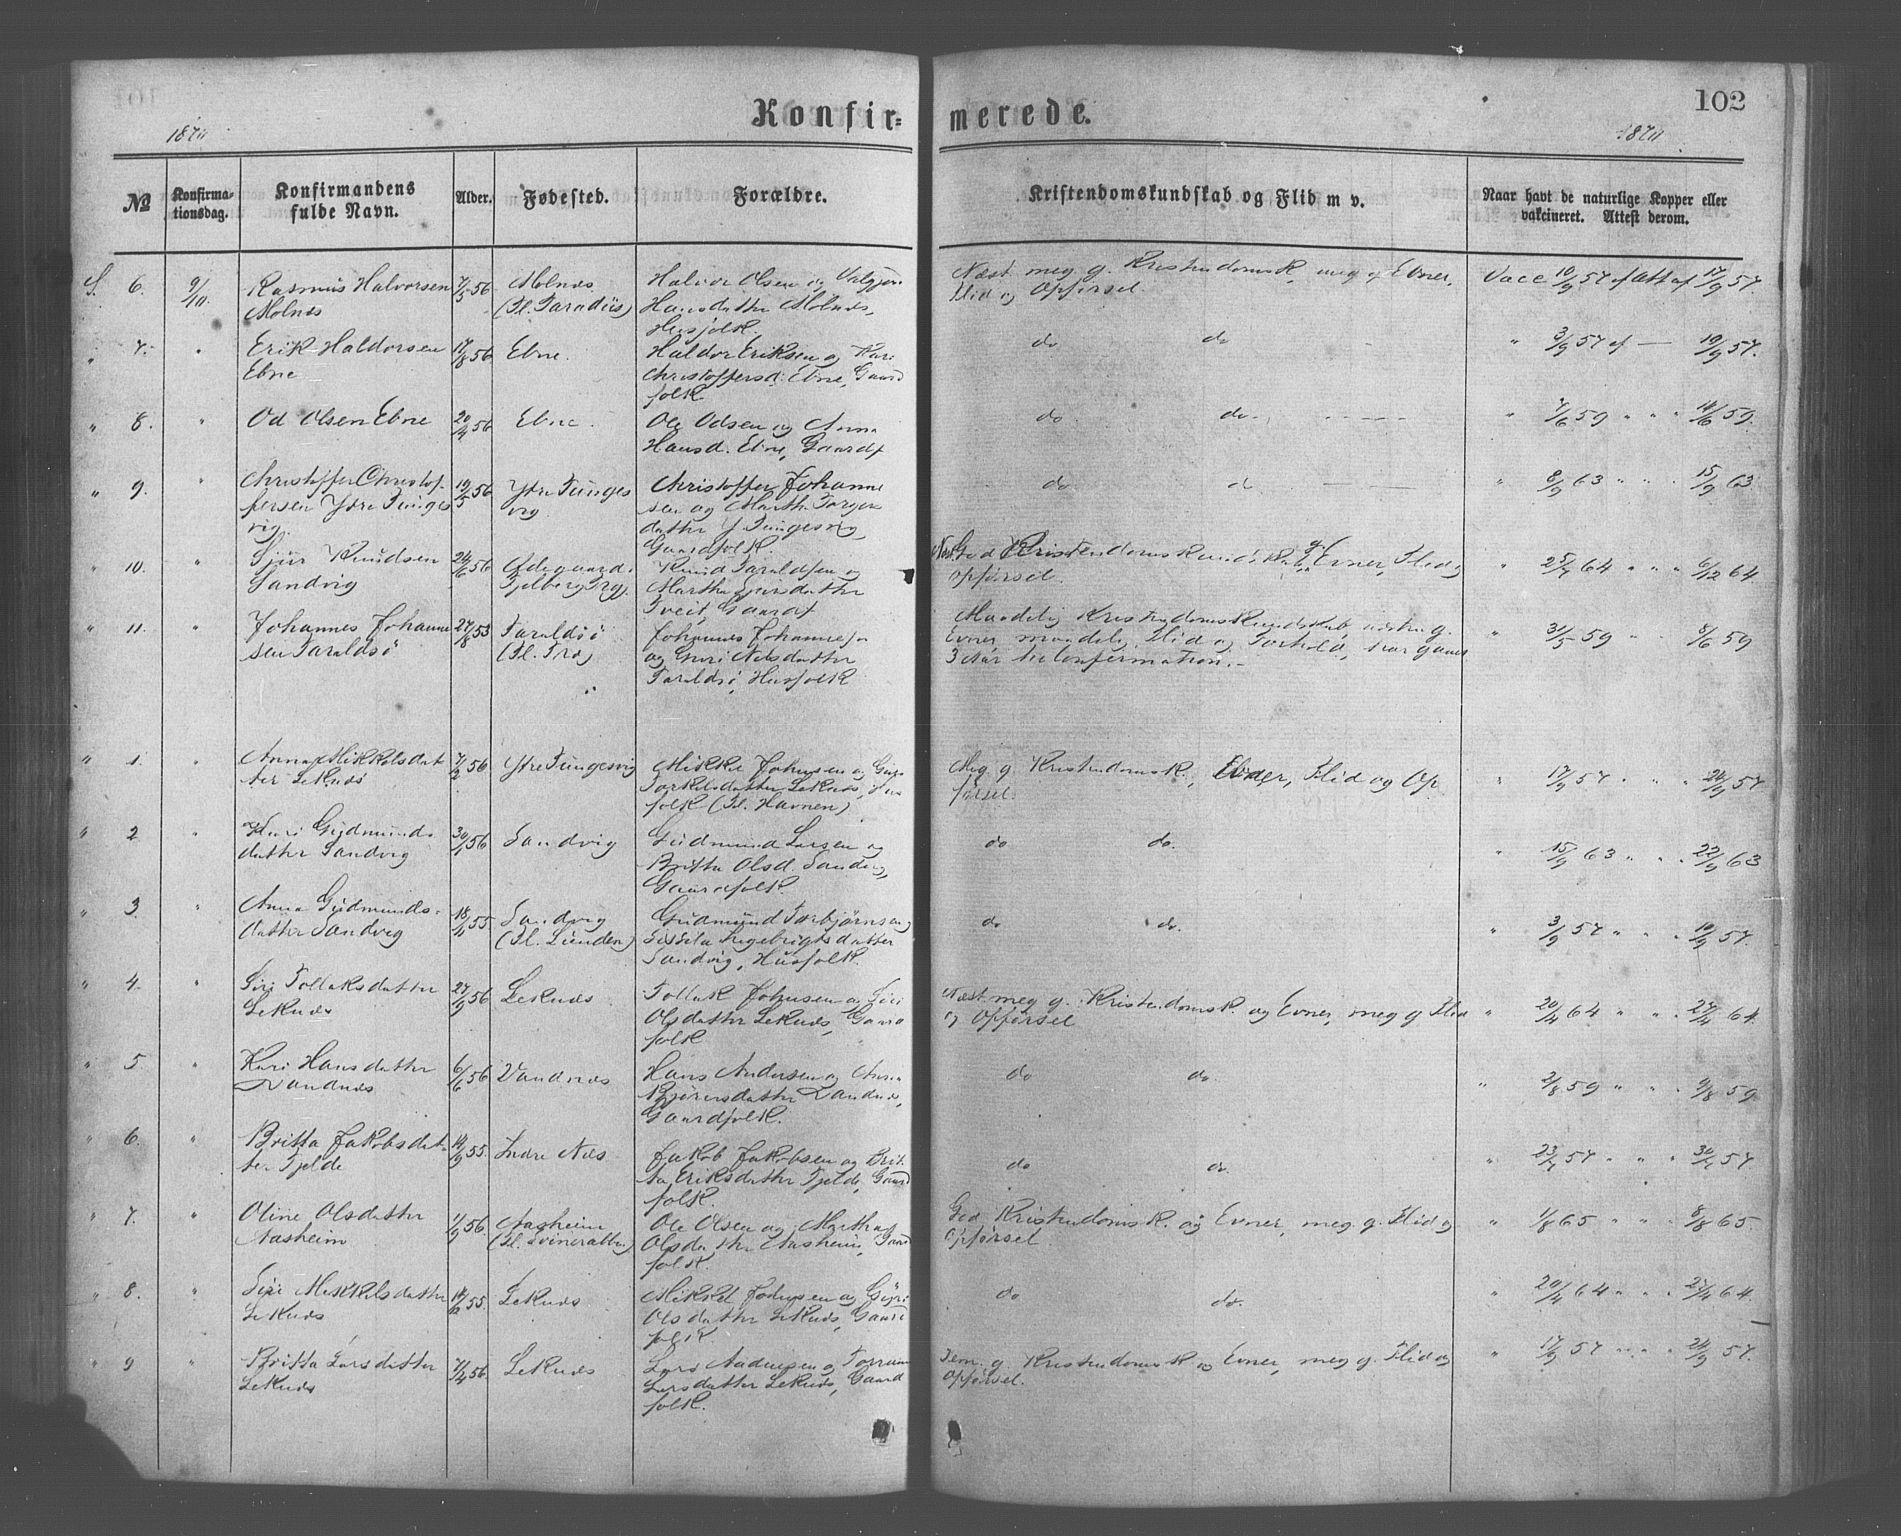 102
Konfir=
merede.
1870
1870
№
Konfirma-
tionsdag.
Konfirmandens
fulde Navn.
Alder.
Fødested.
Forældre.
Kristendomskundskab og Flid m v.
Naar havt de naturlige Kopper eller
vakcineret. Attest derom.
S. 6. 9/10 Rasmus Halvorsen 7/5 56 Molnes Halvor Olsen og
Molnes (Pl. Paradiis) Hansdatter Molnes,
Husfolk.
Næst. meg g. Kristendomsk, meg g Evner, Vacc 10/9 57 ef Att af 17/9 57.
Flid og Opførsel
" 7. " Erik Haldorsen 17/8 56 Ebne. Haldor Eriksen og Kari
Ebne Christoffersd. Ebne, Gaard
folk
do do " 3/9 57 ef — 19/9 57.
" 8. " Od Olsen Ebne 20/4 56 Ebne. Ole Odsen og Anna
Hansd. Ebne, Gaardf
do. do. " 7/6 59 " " 14/6 59.
" 9. " Christoffer Christof- 19/5 56 Ytre Tunges Christoffer Johanne
fersen Ytre Tunges vig sen og Martha
vig. datter Y. Tungesvig,
Gaardfolk.
do " 8/9 63 " " 15/9 63
" 10. " Sjur Knudsen 24/6 56 Ødegaard. Knud Taraldsen og
Sandvig Fjelberg Prgj. Martha Sjursdatter
Tveit, Gaardf
God Kristendomskundskab, Evner, Flid og " 25/7 64 " " 6/12 64.
opførsel.
" 11. " Johannes Johanne 27/8 53 Taraldsö Johannes Johannesen
sen Taraldsö og Guri Nilsdatter
Taraldsö, Husfolk
Maadelig Kristendomskundskab,
Evner, maadelig Flid og Forhold, " 31/5 59 " 8/6 59
" 1. " Anna Mikkelsdat 7/2 56 Ytre Tungesvig Mikkel Johnsen og
ter Leknes Torkelsdatter Leknes, Hus
folk (Pl. Havnen)
Meg g. Kristendomsk., Evner, Flid og Op " 17/9 57 " " 24/9 57
førsel.
" 2 " Guri Gudmunds 30/1 56 Sandvig Gudmund Larsen og
datter Sandvig Britta Olsd Sandvig,
Gaardfolk.
do do. " 15/9 63 " " 22/9 63
" 3. " Anna Gudmunds- 18/11 55 Sandvig Gudmund Torbjørnsen
datter Sandvig (Pl. Lunden) Sissela Ingebrigtsdatter
Sandvig, Husfolk.
do do. " 3/9 57 " " 10/9 57.
" 4. " Siri Tollaksdatter 27/9 56 Leknes Tollak Johnsen og Siri
Leknes Olsdatter Leknes, Gaard
folk
Næst meg g. Kristendomsk. og Evner, meg g Flid " 20/4 64 " " 27/4 64.
og Opførsel
" 5 " Kari Hansdatter 6/6 56 Vandnes Hans Andersen og Anna
Vandnes Bjørnsdatter Vandnes,
Gaardfolk.
do do. " 2/8 59 " " 9/8 59
" 6. " Britta Jakobsdat- 14/9 55. Indre Næs Jakob Jakobsen og Brit
ter Fjelde ta Eriksdatter Fjelde, Gaard
folk.
do do. " 23/7 57 " " 30/7 57.
" 7. " Oline Olsdatter 1/9 56. Aasheim Ole Olsen og Martha
Aasheim Olsdatter Aasheim, Gaard
folk.
God Kristendomsk. og Evner, meg. g. Flid og " 1/8 65 " " 8/8 65.
Opførsel.
" 8. " Siri Mikkelsdatter 14/12 55. Leknes Mikkel Johnsen og Guri
Leknes Olsdatter Leknes, Gaard
folk.
do do. " 20/4 64 " " 27/4 64.
" 9 " Britta Larsdatter 7/4 56. Leknes Lars Aadnesen og
Leknes Larsdatter Leknes, Gaard
folk.
Tem. g. Kristendomsk og Evner, meg g. Flid og " 17/9 57 " " 24/9 57.
Opførsel.